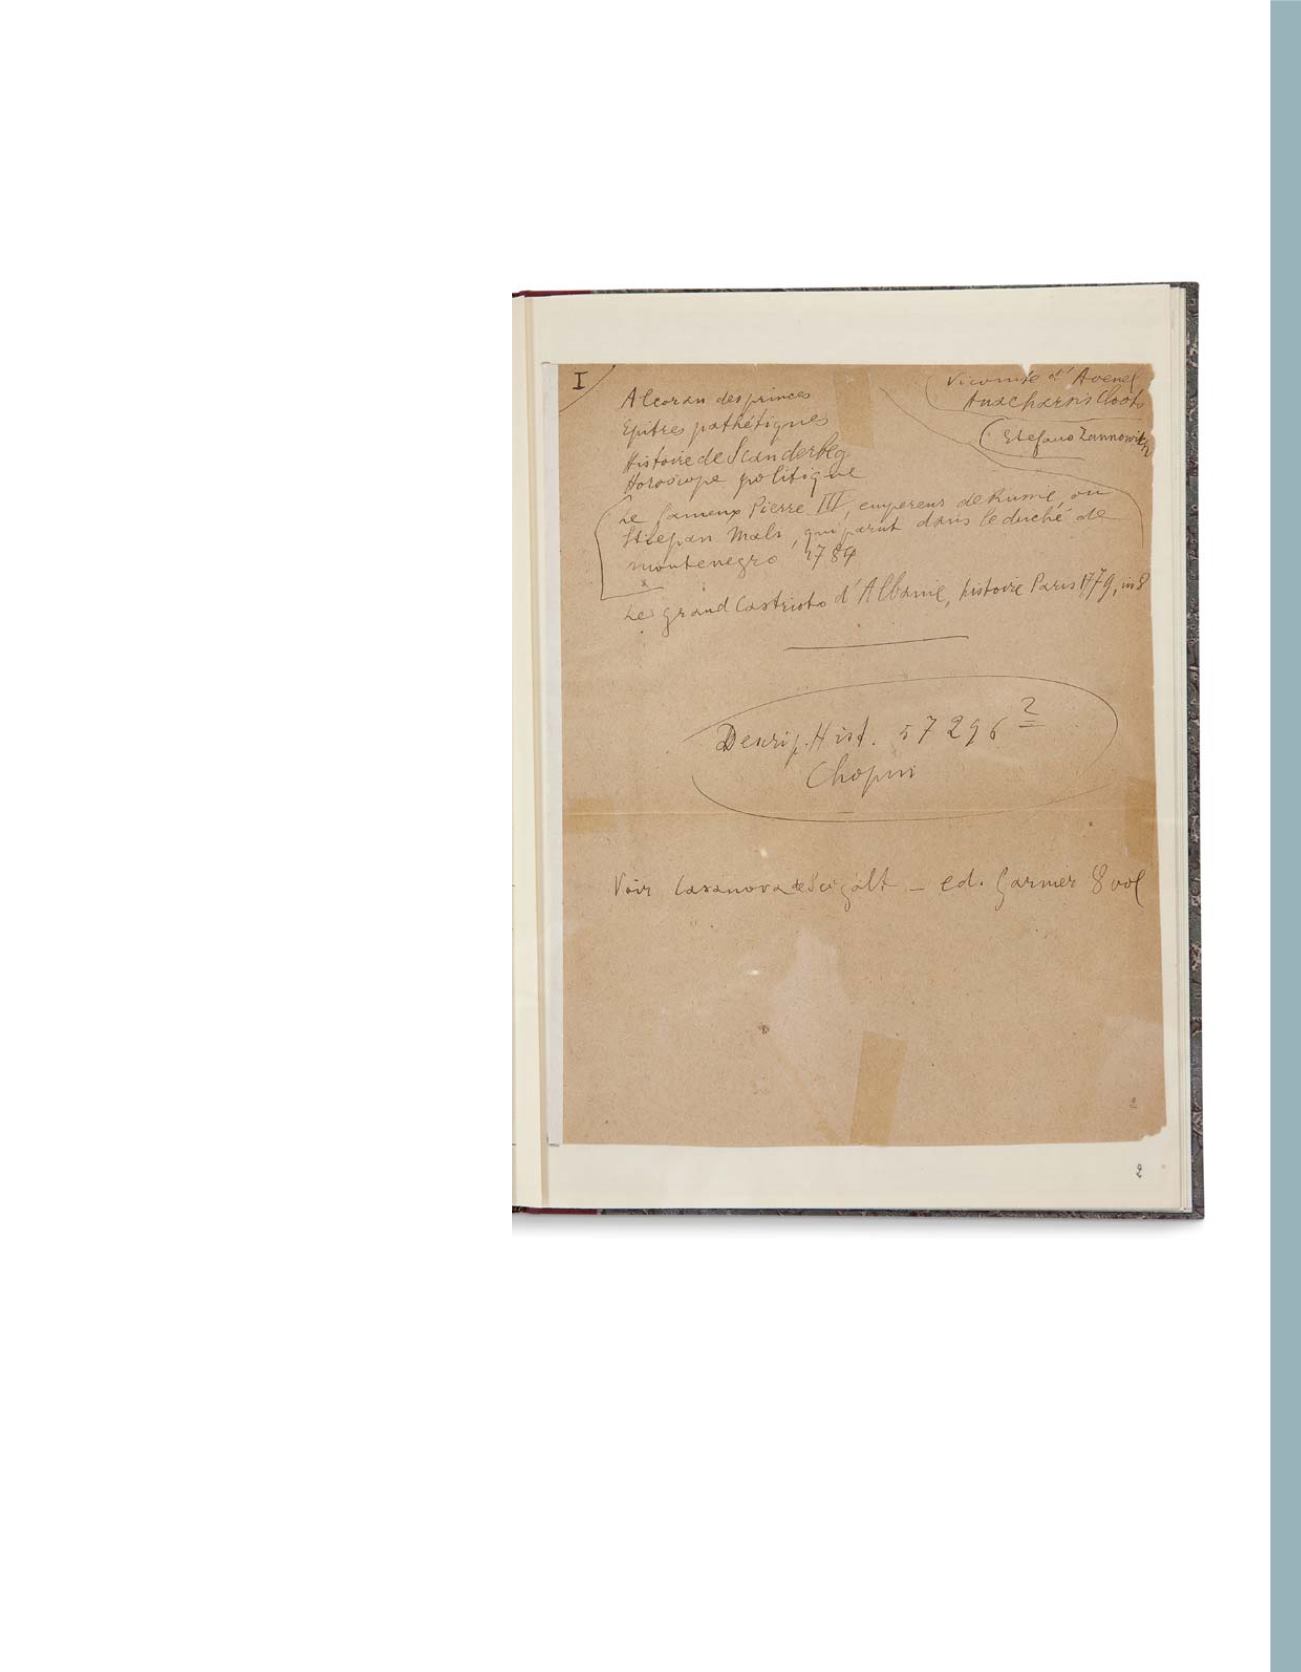 I
Vicomte d'Avenel
Anacharsis Cloots
Stefano Zannowitz
Alcoran des princes
Epitres pathétiques
Histoire de Scanderbeg
Horoscope politique
Le fameux Pierre III, empereur de Russie, ou
Stiepan Mali, qui parut dans le duché de
montenegro 1784
Le grand Castrioto d'Albanie, histoire Paris 1779, in 8
Descrip. Hist. 57296 2
Chopin
Voir Casanova de Seigalt – ed. Garnier 8 vol
2
2